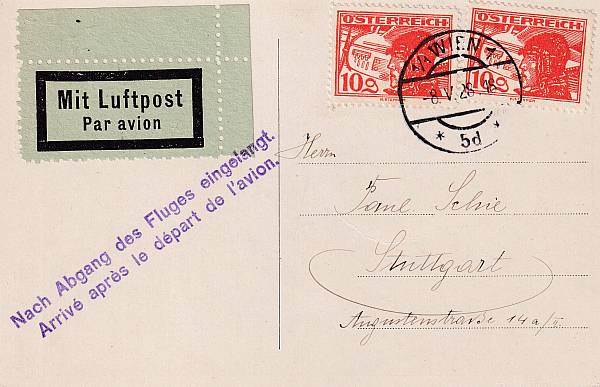 Mit Luftpost
Par avion
ÖSTERREICH
10g
ÖSTERREICH
10g
1/1 WIEN 1
-8.V.28
* 5d *
Nach Abgang des Fluges eingelangt.
Arrivé après le départ de l'avion.
Herrn
Paul Schie
Stuttgart
Augustenstrasse 14a/II.